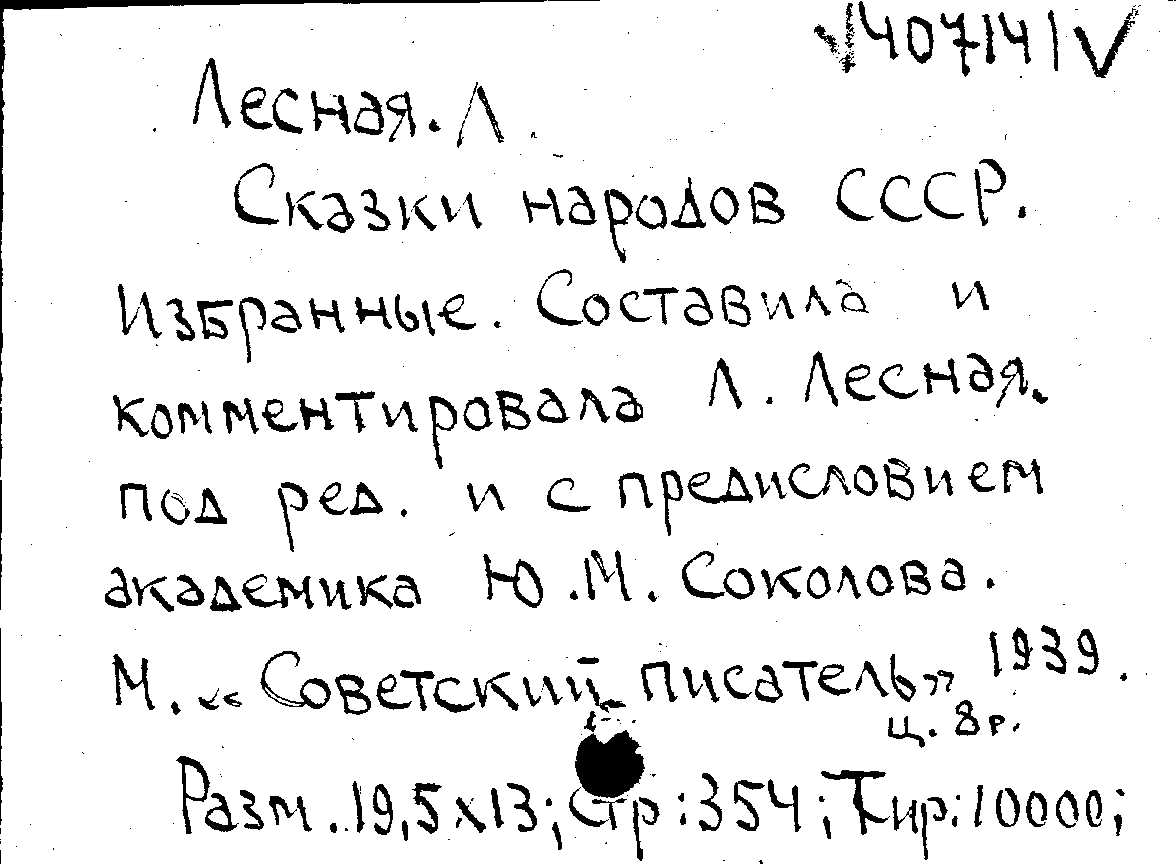 √407141√
Лесная. Л.
Сказки народов СССР.
Избранные. Составила и
комментировала Л. Лесная.
под ред. и с предисловием
академика Ю.М. Соколова.
М. „Советский писатель” 1939.
ц. 8 р.
Разм. 19,5х13; Стр: 354; Тир: 10000;